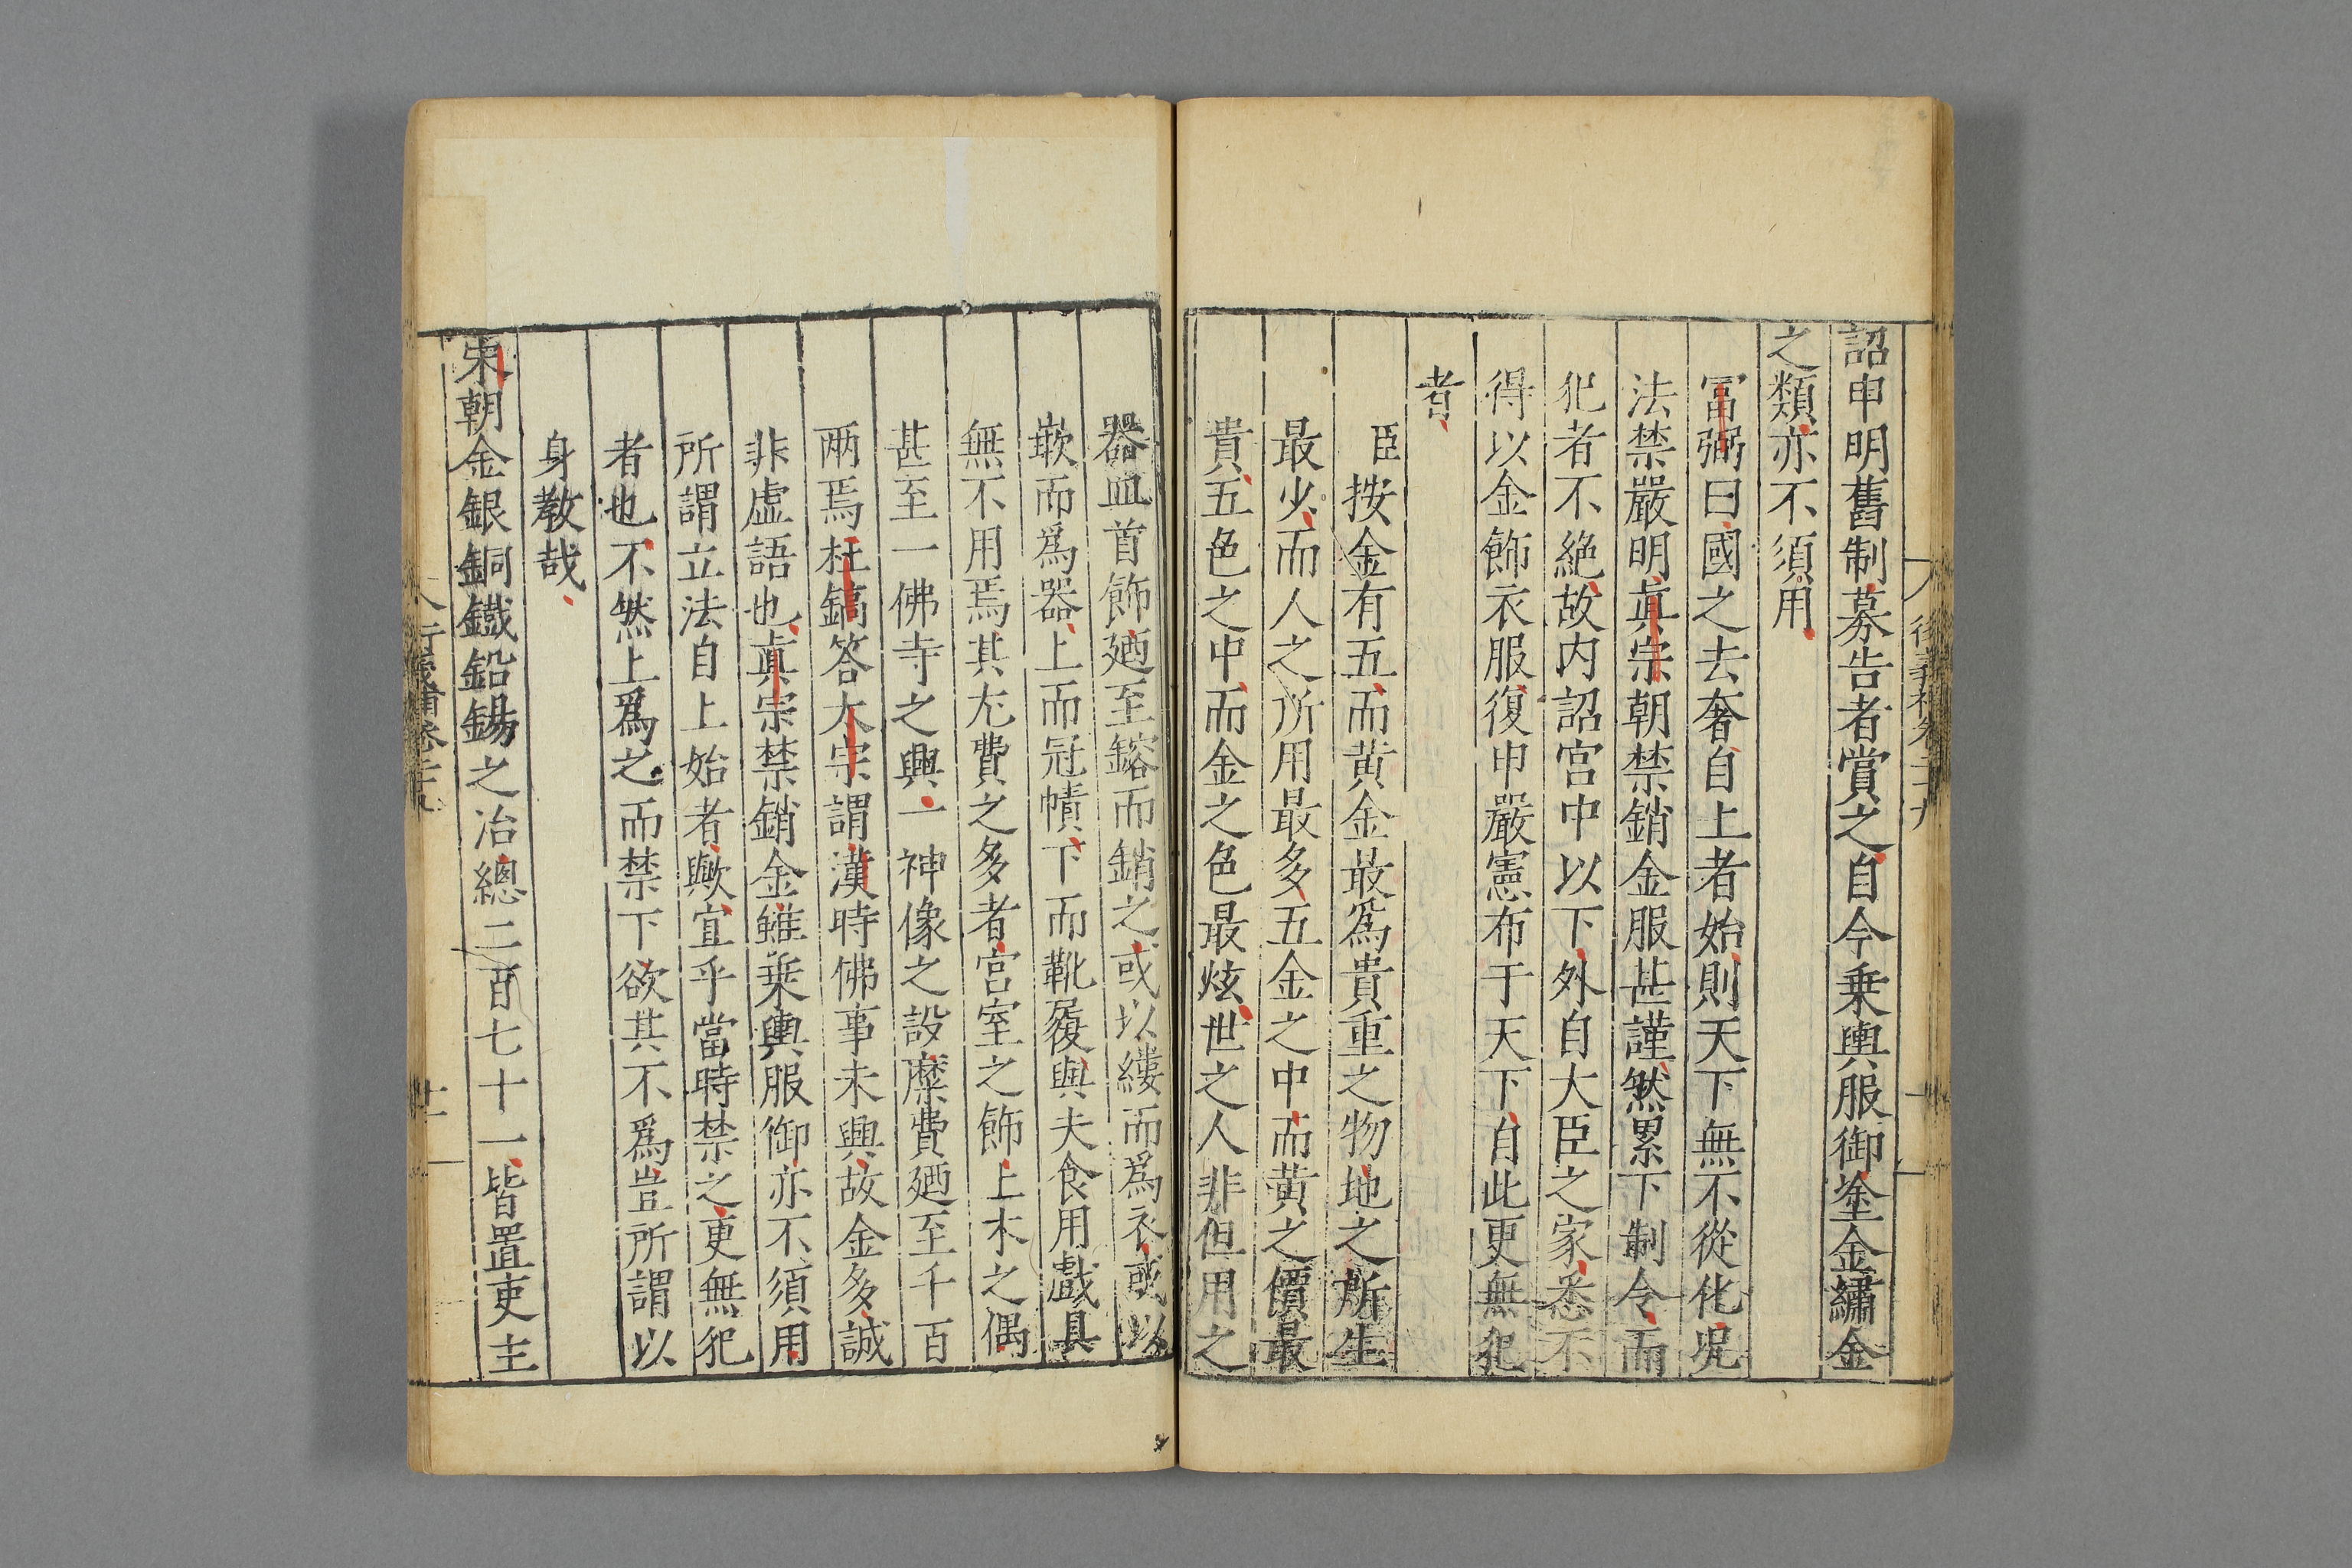 詔申明舊制募告者賞之自今乗輿服御塗金繡金
之類亦不須用
冨弼曰國之去奢自上者始則天下無不從化況
法禁嚴明眞宗朝禁銷金服甚謹然累下制令而
犯者不絶故内詔宮中以下外自大臣之家悉不
得以金飾衣服復申嚴憲布于天下自此更無犯
者
臣按金有五而黄金最爲貴重之物地之所生
最少而人之所用最多五金之中而黄之價最
貴五色之中而金之色最炫世之人非但用之
器皿首飾廼至鎔而銷之或以縷而爲衣或以
嵌而爲器上而冠幘下而靴履與夫食用戲具
無不用焉其尤費之多者宮室之飾土木之偶
甚至一佛寺之興一神像之設糜費廼至千百
兩焉杜鎬答太宗謂漢時佛事未興故金多誠
非虚語也眞宗禁銷金雖乗輿服御亦不須用
所謂立法自上始者歟宜乎當時禁之更無犯
者也不然上爲之而禁下欲其不爲豈所謂以
身教哉
宋朝金銀銅鐵鉛錫之冶總二百七十一皆置吏主
衍義補卷二十九
廿一